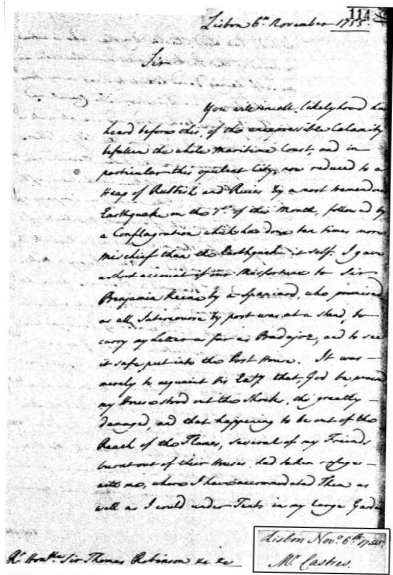 114
Lisbon 6th November 1755.
Sir
You will in all likelyhood have
heard before this, of the inexpressible Calamity
befallen the whole Maritime Coast, and in
particular this opulent City, now reduced to a
Heap of Rubbish and Ruins by a most tremendous
Earthquake on the 1st of this Month, followed by
a Conflagration which has done ten times more
Mischief than the Earthquake it self. I gave
a short account of our Misfortune to Sir
Benjamin Keene by a Spaniard, who promised
as all Intercourse by post was at a stand, to
carry my Letter as far as Badajoz, and to see
it safe put into the Post House. It was
merely to acquaint his Exy that God be praised
my House stood out the Shock, tho' greatly
damaged, and that happening to be out of the
Reach of the Flames, several of my Friends
burnt out of their Houses, had taken refuge
with me, where I have accomodated Them as
well as I could under Tents in my large Garden
Rt. Honble. Sir Thomas Robinson &c &c
Lisbon Novr. 6th 1755.
Mr. Castres.